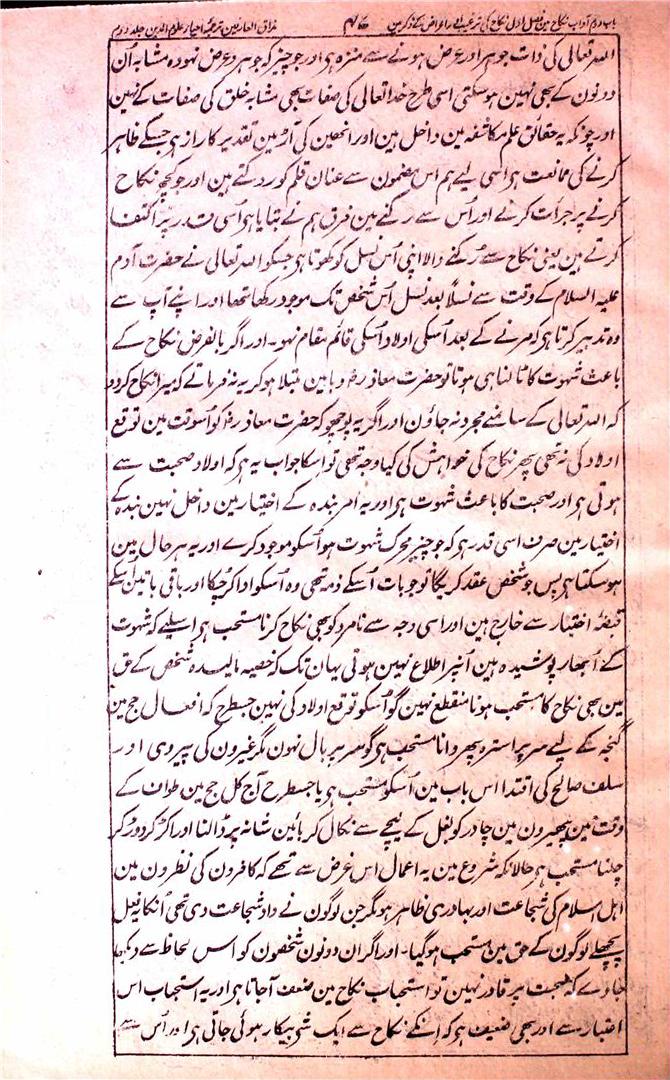 باب دوم آداب نکاح مین فصل اول نکاح کی ترغیب اور اعراض کے ذکر مین ۴۷ مذاق العارفین ترجمہ احیاء علوم الدین جلد دوم
اللہ تعالی کی ذات جوہر اور عرض ہونے سے منزہ ہے اور جو چیز کہ جوہر و عرض نہو وہ مشابہ اُن
دونون کے بھی نہین ہو سکتی اسی طرح خدا تعالی کی صفات بھی مشابہ خلق کی صفات کے نہین
اور چونکہ یہ حقائق علم مکاشفہ مین داخل ہین اور انھین کی آڑ مین تقدیر کا راز ہے جسکے ظاہر
کرنے کی ممانعت ہے اسی لیے ہم اس مضمون سے عنان قلم کو روکتے ہین اور جو کچھ نکاح
کرنے پر جرأت کرنے اور اُس سے رکنے مین فرق ہم نے بتایا ہے اُسی قدر پر اکتفا
کرتے ہین یعنی نکاح سے رُکنے والا اپنی اُس نسل کو کھوتا ہے جسکو اللہ تعالی نے حضرت آدم
علیہ السلام کے وقت سے نسلًا بعد نسل اُس شخص تک موجود رکھا تھا اور اپنے آپ سے
وہ تدبیر کرتا ہے کہ مرنے کے بعد اُسکی اولاد اُسکی قائم مقام نہو۔ اور اگر بالفرض نکاح کے
باعث شہوت کا ٹالنا ہی ہوتا تو حضرت معاذ رضؓ وبا مین مبتلا ہو کر یہ نہ فرماتے کہ میرا نکاح کردو
کہ اللہ تعالی کے سامنے مجرد نہ جاؤن اور اگر یہ پوچھو کہ حضرت معاذ رضؓ کو اُسوقت مین توقع
اولاد کی نہ تھی پھر نکاح کی خواہش کی کیا وجہ تھی تو اسکا جواب یہ ہے کہ اولاد صحبت سے
ہوتی ہے اور صحبت کا باعث شہوت ہے اور یہ امر بندہ کے اختیار مین داخل نہین بندہ کے
اختیار مین صرف اسی قدر ہے کہ جو چیز محرک شہوت ہو اُسکو موجود کرے اور یہ ہر حال مین
ہو سکتا ہے پس جو شخص عقد کریگا تو جو بات اُسکے ذمہ تھی وہ اُسکو ادا کر چکا اور باقی باتین اُسکے
قبضہ اختیار سے خارج ہین اور اسی وجہ سے نامرد کو بھی نکاح کرنا مستحب ہے اسلیے کہ شہوت
کے اُبھار پوشیدہ ہین اُنپر اطلاع نہین ہوتی یہان تک کہ خصیہ مالیدہ شخص کے حق
مین بھی نکاح کا مستحب ہونا منقطع نہین گو اُسکو توقع اولاد کی نہین جسطرح کہ افعال حج مین
گنجہ کے لیے سر پر استرہ پھروانا مستحب ہے گو سر پر بال نہون مگر غیرون کی پیروی اور
سلف صالح کی اقتدا اس باب مین اُسکو مستحب ہے یا جسطرح آج کل حج مین طواف کے
وقت مین پھیرون مین چادر کو بغل کے نیچے سے نکال کر بائین شانہ پر ڈالنا اور اکڑ کر دوڑ کر
چلنا مستحب ہے حالانکہ شروع مین یہ اعمال اس غرض سے تھے کہ کافرون کی نظرون مین
اہل اسلام کی شجاعت اور بہادری ظاہر ہو مگر جن لوگون نے داد شجاعت دی تھی اُنکا یہ فعل
پچھلے لوگون کے حق مین مستحب ہو گیا۔ اور اگر ان دونون شخصون کو اس لحاظ سے دیکھا
جاوے کہ صحبت پر قادر نہین تو استحباب نکاح مین ضعف آجاتا ہے اور یہ استحباب اس
اعتبار سے اور بھی ضعیف ہے کہ اُنکے نکاح سے ایک شے بیکار ہوئی جاتی ہے اور اُس سے